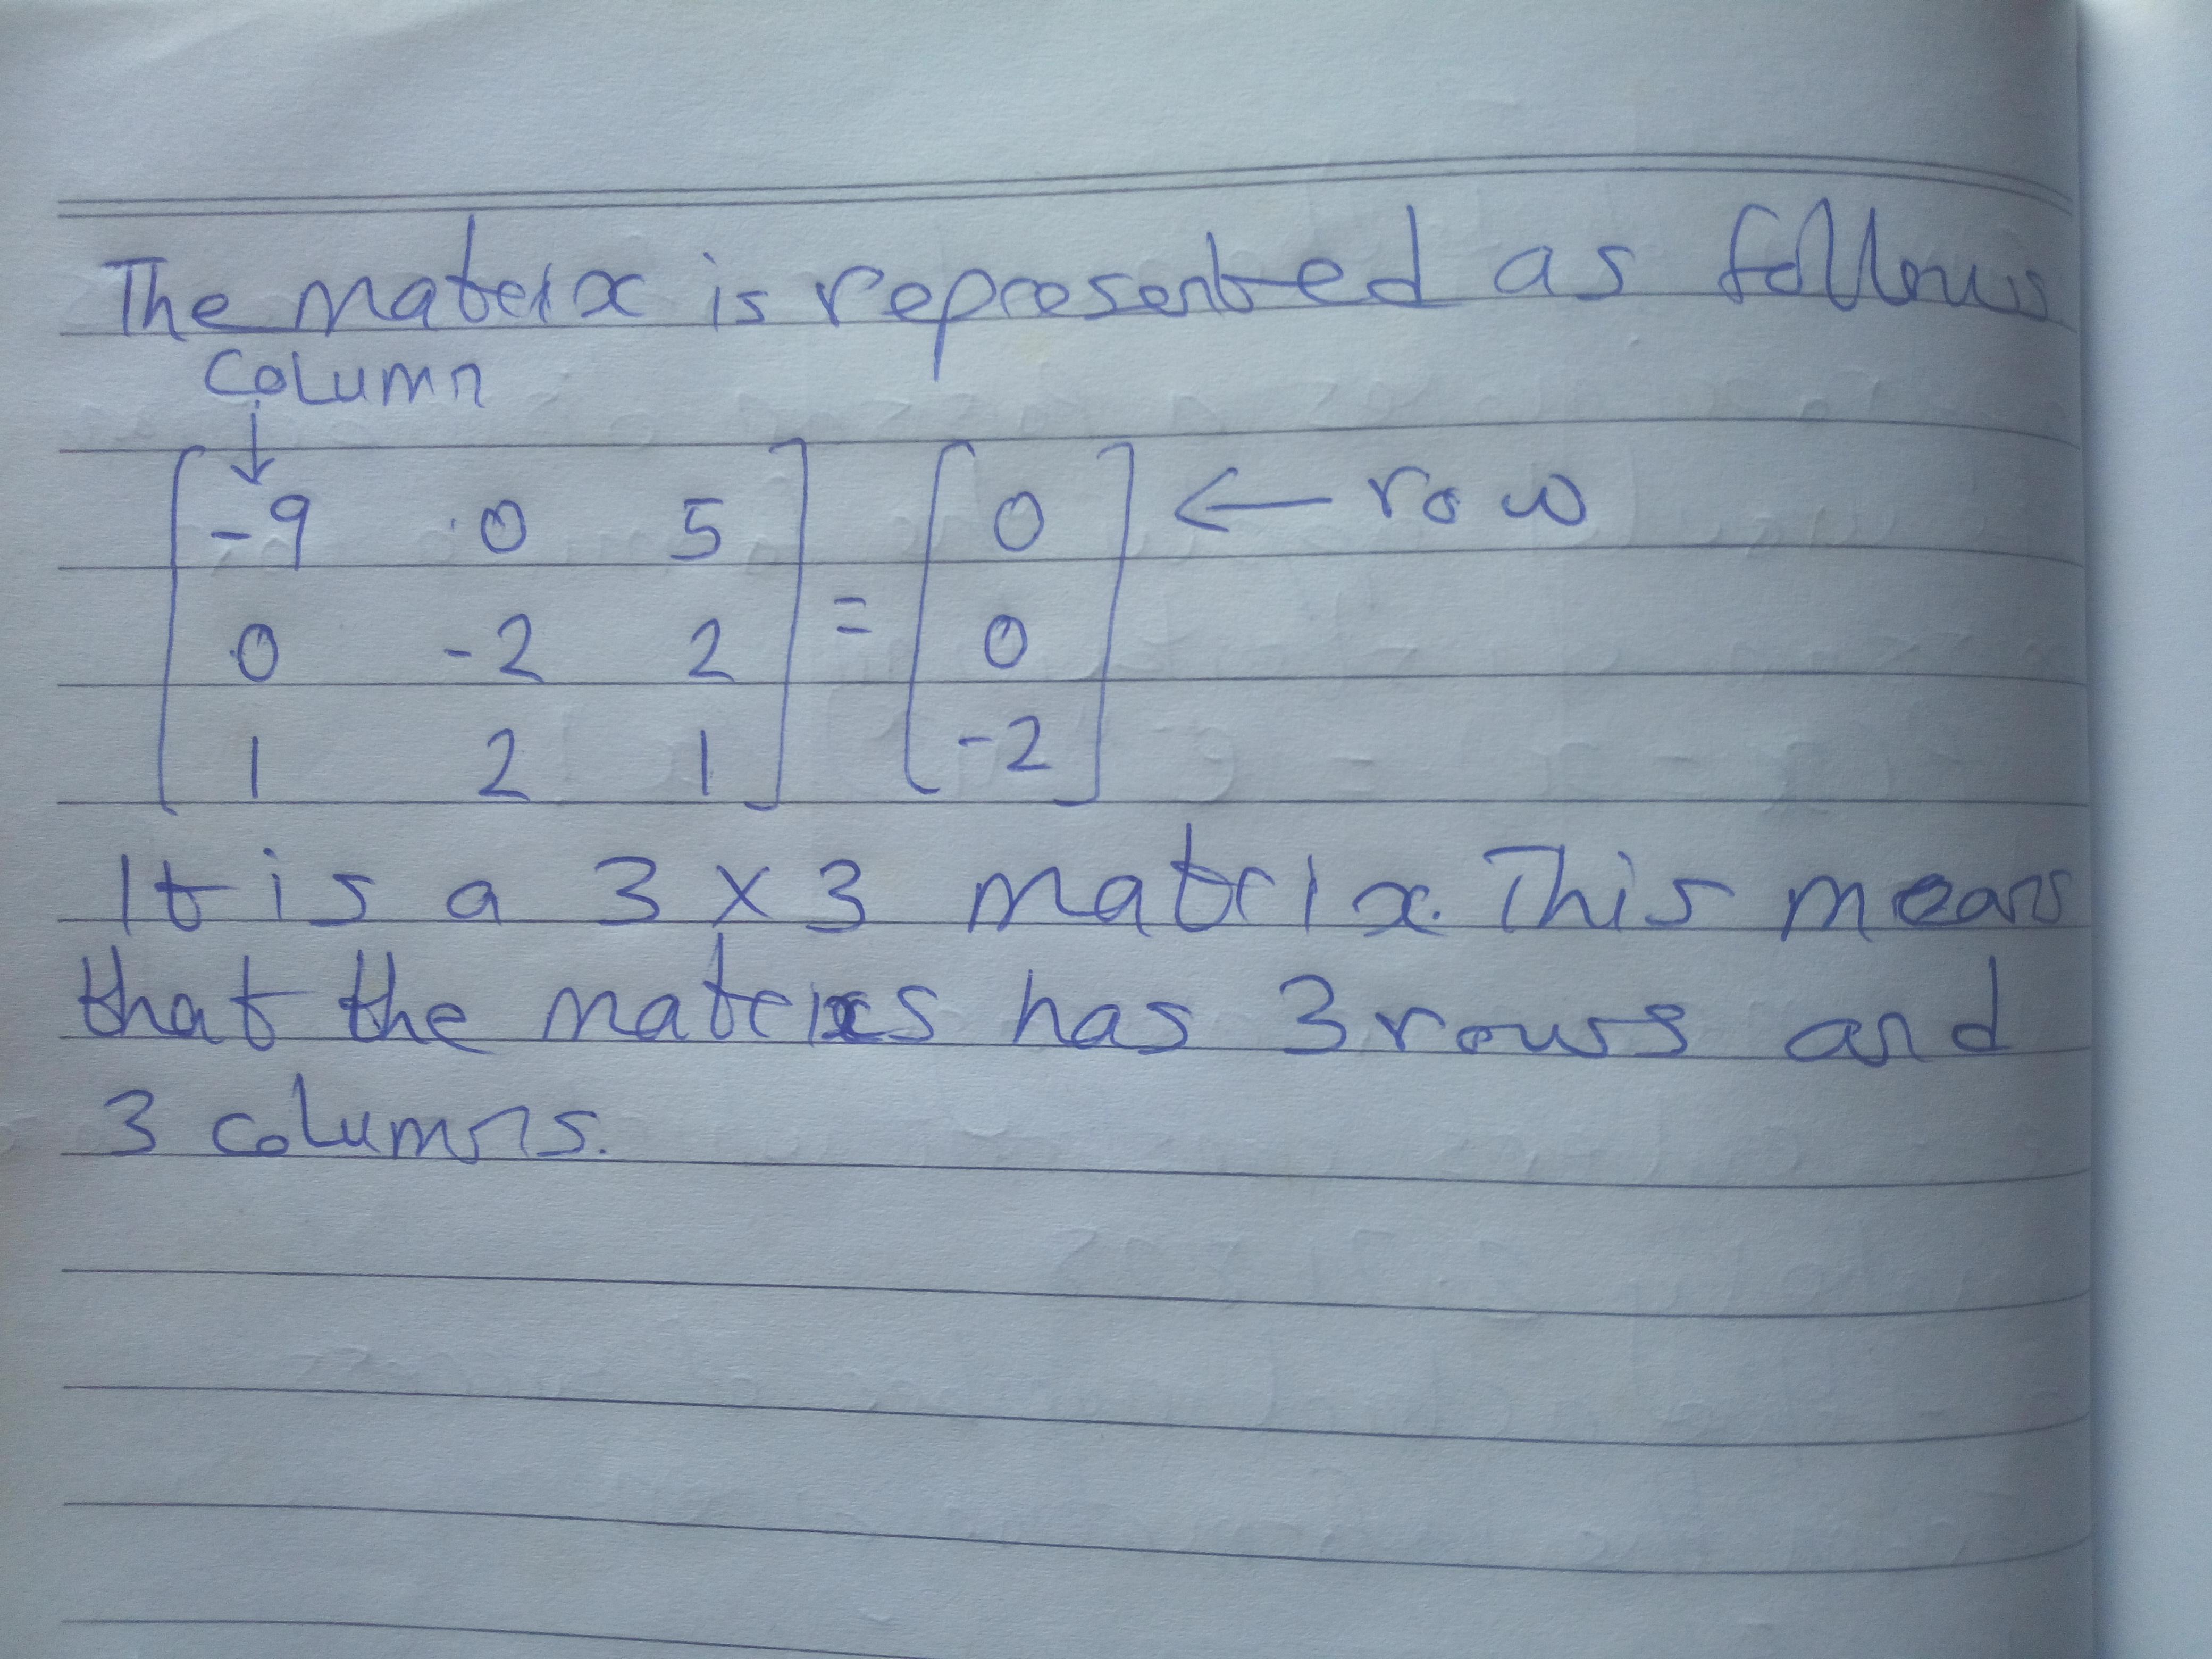 The matrix is represented as follows
column
-9 0 5 = 0 ← row
0 -2 2 0
1 2 1 -2
It is a 3 x 3 matrix. This means
that the matrixs has 3 rows and
3 columns.